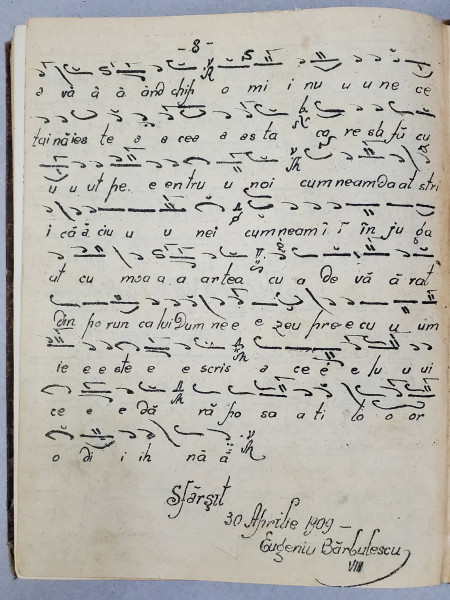 - 8 -
a vă ă ă ând chip o mi i nu u u ne ce
tai năies te a a cea a as ta ca re sta fu cu
u u ut pe. e en tru u noi cum neam da at stri
i că ă ciu u u nei cum neam i ĭ în ju ga
at cu moa a a ar tea cu a de vă ă rat
din po run ca lui Dum ne e e zeu pre e cu u um
ie e e ste e e scris a ce e e lu u ui
ce e e dă ră po sa a ti lo o or
o di i ih nă ă
Sfârșit
30 Aprilie 1909 -
Eugeniu Bărbulescu
VIII